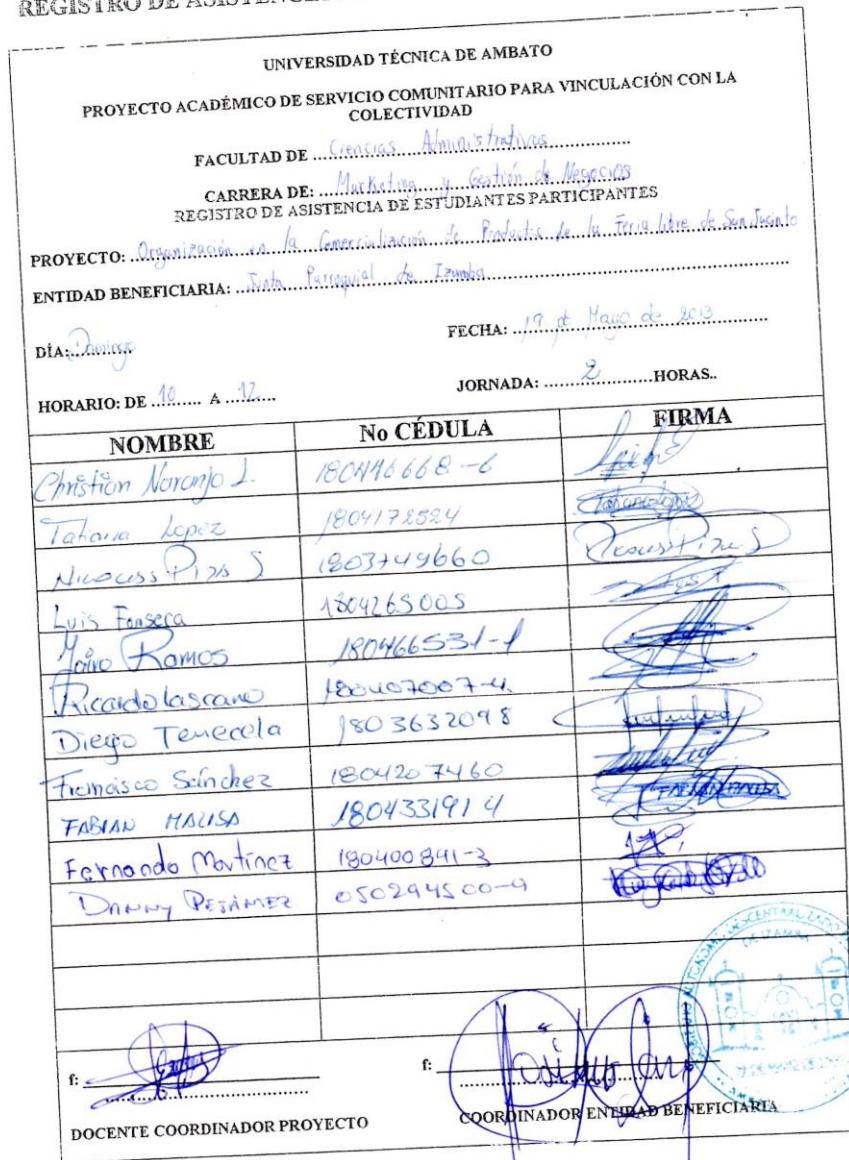 REGISTRO DE
UNIVERSIDAD TÉCNICA DE AMBATO
PROYECTO ACADÉMICO DE SERVICIO COMUNITARIO PARA VINCULACIÓN CON LA
COLECTIVIDAD
FACULTAD DE Ciencias Administrativas
CARRERA DE: Marketing y Gestión de Negocios
REGISTRO DE ASISTENCIA DE ESTUDIANTES PARTICIPANTES
PROYECTO: Organización en la Comercialización de Productos de la Feria libre de San Jacinto
ENTIDAD BENEFICIARIA: Junta Parroquial de Izamba
DÍA: Domingo FECHA: 19 de Mayo de 2013
HORARIO: DE 10 A 12 JORNADA: 2 HORAS..
NOMBRE No CÉDULA FIRMA
Christian Naranjo J. 180446668-6
Tatiana Lopez 1804178524
1803749660
Luis Fonseca 1804265005
Jairo Ramos 180466531-1
Ricardo lascano 180407007-4
Diego Tenecela 1803632098
Francisco Sánchez 1804207460
FABIAN MALISA 1804331914
Fernando Martínez 180400891-3
DANNY 050294500-9
f: f:
DOCENTE COORDINADOR PROYECTO COORDINADOR ENTIDAD BENEFICIARIA